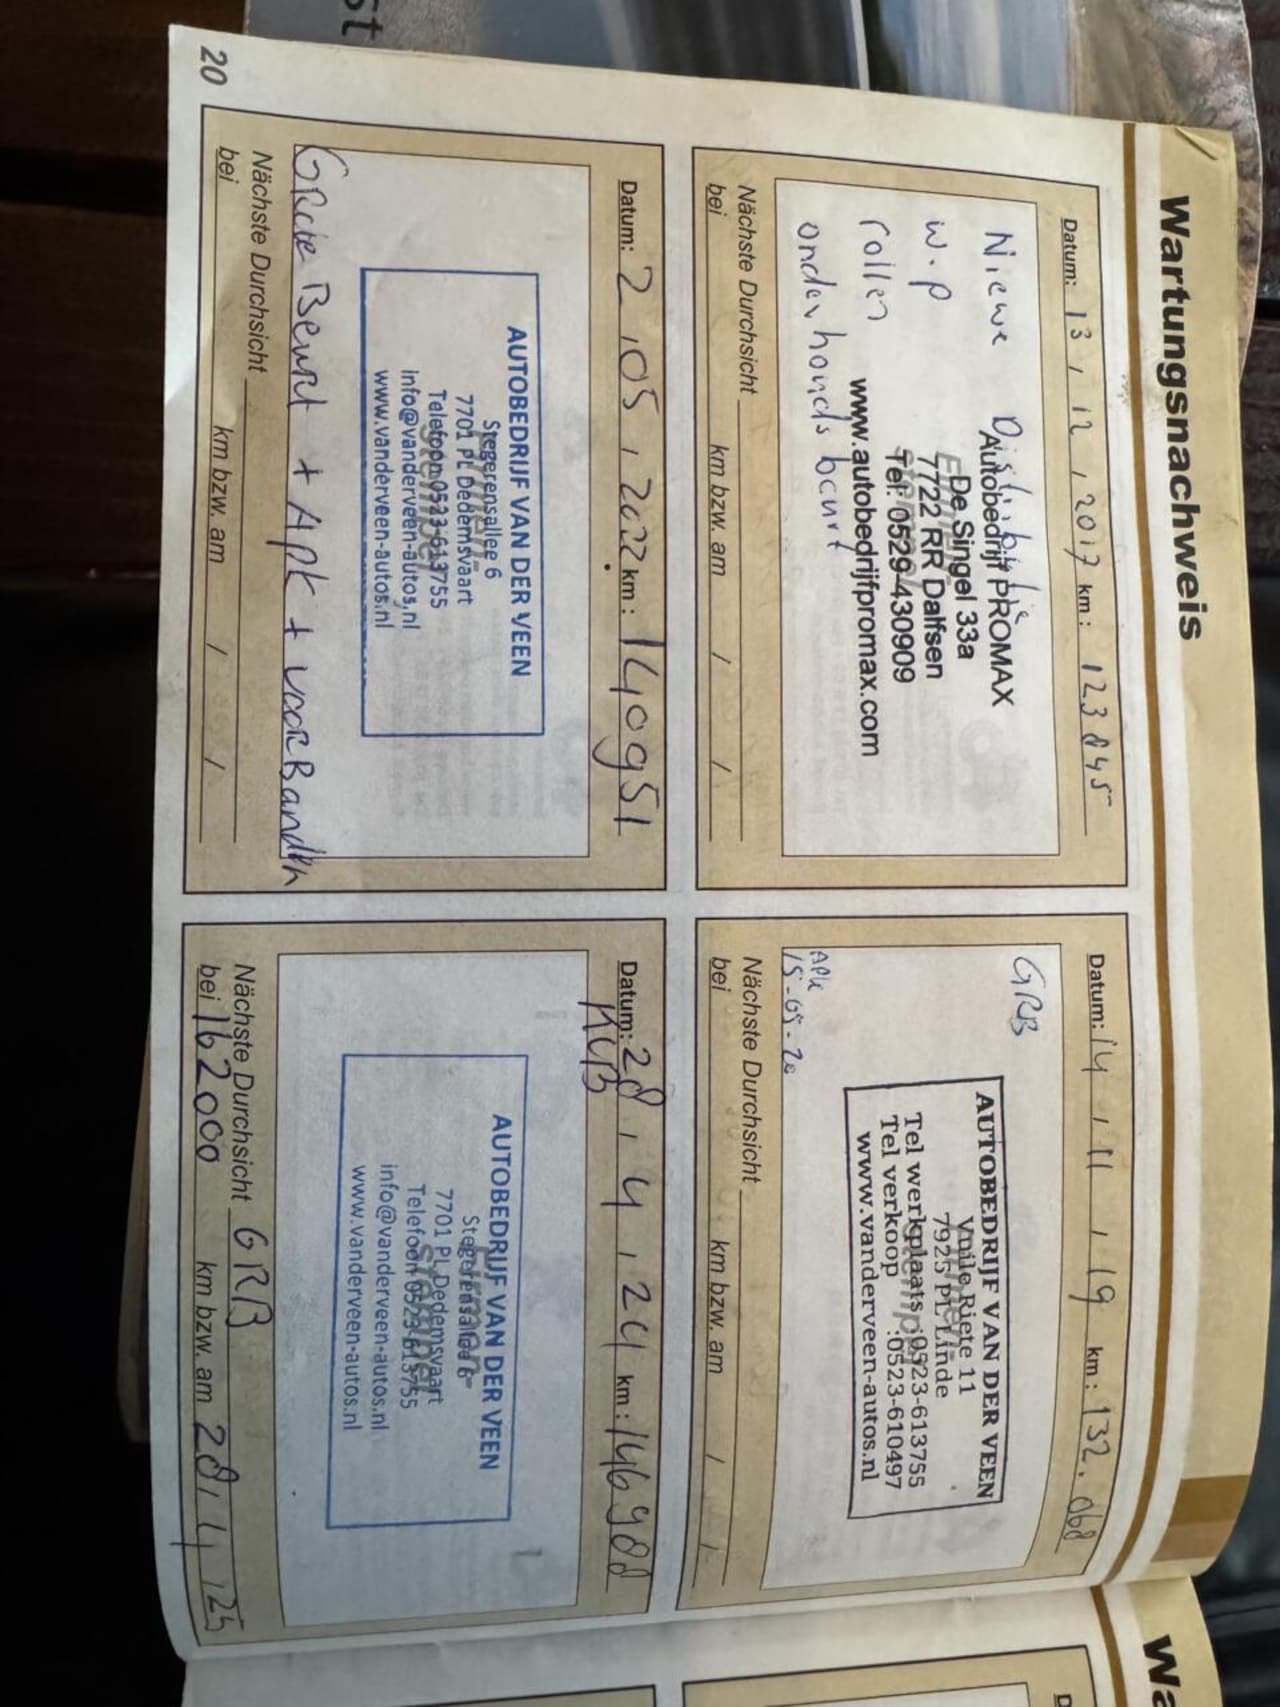 Wartungsnachweis
Datum: 13 / 12 / 2017 km: 123845
Niewe Distributie
w.p
rollen
onderhouds beurt
Autobedrijf PROMAX
De Singel 33a
7722 RR Dalfsen
Tel. 0529-430909
www.autobedrijfpromax.com
Nächste Durchsicht
bei km bzw. am / /
Datum: 14 / 11 / 19 km: 132.068
GRB
AUTOBEDRIJF VAN DER VEEN
Vuile Riete 11
7925 PL Linde
Tel werkplaats :0523-613755
Tel verkoop :0523-610497
www.vanderveen-autos.nl
APK
15-05-20
Nächste Durchsicht
bei km bzw. am / /
Datum: 2 / 05 / 2022 km: 140951
AUTOBEDRIJF VAN DER VEEN
Stegerensallee 6
7701 PL Dedemsvaart
Telefoon 0523-613755
info@vanderveen-autos.nl
www.vanderveen-autos.nl
GRote Beurt + APK + vooRBanden
Nächste Durchsicht
bei km bzw. am / /
Datum: 28 / 4 / 24 km: 146988
KLB
AUTOBEDRIJF VAN DER VEEN
Stegerensallee 6
7701 PL Dedemsvaart
Telefoon 0523-613755
info@vanderveen-autos.nl
www.vanderveen-autos.nl
Nächste Durchsicht GRB
bei 162000 km bzw. am 28 / 4 / 25
20
Wa